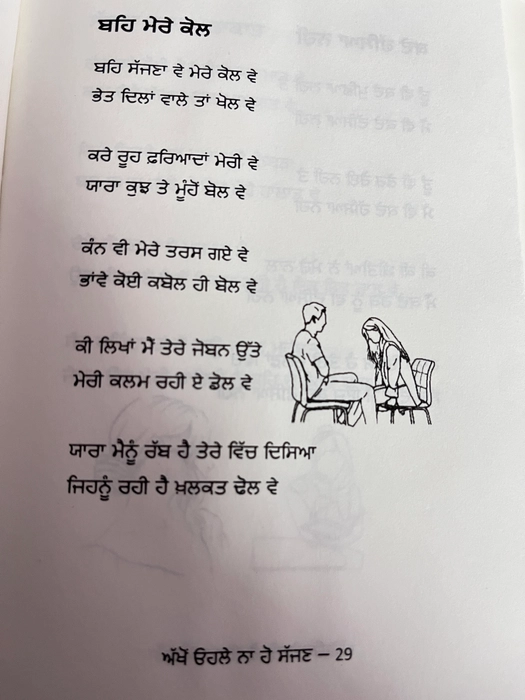 ਬਹਿ ਮੇਰੇ ਕੋਲ
ਬਹਿ ਸੱਜਣਾ ਵੇ ਮੇਰੇ ਕੋਲ ਵੇ
ਭੇਤ ਦਿਲਾਂ ਵਾਲੇ ਤਾਂ ਖੋਲ ਵੇ
ਕਰੇ ਰੂਹ ਫ਼ਰਿਆਦਾਂ ਮੇਰੀ ਵੇ
ਯਾਰਾ ਕੁਝ ਤੇ ਮੂੰਹੋਂ ਬੋਲ ਵੇ
ਕੰਨ ਵੀ ਮੇਰੇ ਤਰਸ ਗਏ ਵੇ
ਭਾਂਵੇ ਕੋਈ ਕਬੋਲ ਹੀ ਬੋਲ ਵੇ
ਕੀ ਲਿਖਾਂ ਮੈਂ ਤੇਰੇ ਜੋਬਨ ਉੱਤੇ
ਮੇਰੀ ਕਲਮ ਰਹੀ ਏ ਡੋਲ ਵੇ
ਯਾਰਾ ਮੈਨੂੰ ਰੱਬ ਹੈ ਤੇਰੇ ਵਿੱਚ ਦਿਸਿਆ
ਜਿਹਨੂੰ ਰਹੀ ਹੈ ਖ਼ਲਕਤ ਢੋਲ ਵੇ
ਅੱਖੋਂ ਓਹਲੇ ਨਾ ਹੋ ਸੱਜਣ – 29